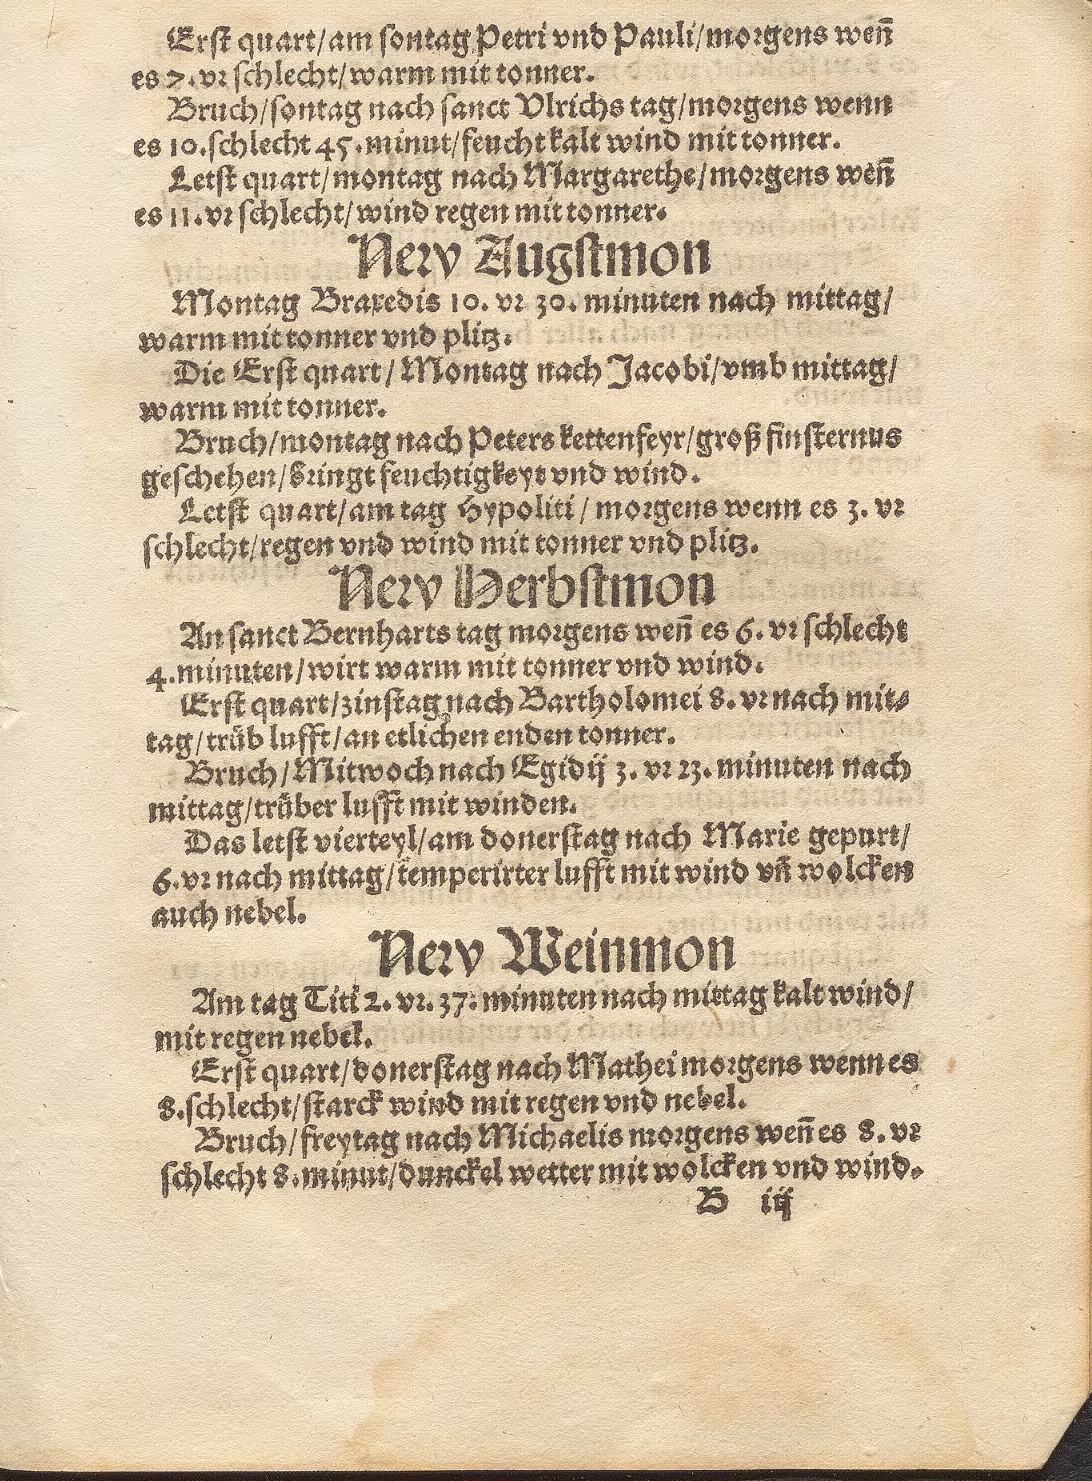 Erst quart/am sontag Petri vnd Pauli/morgens weñ
es 7. vr schlecht/warm mit tonner.
Bruch/sontag nach sanct Vlrichs tag/morgens wenn
es 10. schlecht 45. minut/feucht kalt wind mit tonner.
Letst quart/montag nach Margarethe/morgens weñ
es 11. vr schlecht/wind regen mit tonner.
Nerv Augstmon
Montag Braxedis 10. vr 30. minuten nach mittag/
warm mit tonner vnd plitz.
Die Erst quart/Montag nach Jacobi/vmb mittag/
warm mit tonner.
Bruch/montag nach Peters kettenfeyr/groß finsternus
geschehen/bringt feuchtigkeyt vnd wind.
Letst quart/am tag Hypoliti/morgens wenn es 3. vr
schlecht/regen vnd wind mit tonner vnd plitz.
Nerv Herbstmon
An sanct Bernharts tag morgens weñ es 6. vr schlecht
4. minuten/wirt warm mit tonner vnd wind.
Erst quart/zinstag nach Bartholomei 8. vr nach mit-
tag/trüb lufft/an etlichen enden tonner.
Bruch/Mitwoch nach Egidij 3. vr 23. minuten nach
mittag/trüber lufft mit winden.
Das letst vierteyl/am donerstag nach Marie gepurt/
6. vr nach mittag/temperirter lufft mit wind vñ wolcken
auch nebel.
Nerv Weinmon
Am tag Titi 2. vr. 37. minuten nach mittag kalt wind/
mit regen nebel.
Erst quart/donerstag nach Mathei morgens wenn es
8. schlecht/starck wind mit regen vnd nebel.
Bruch/freytag nach Michaelis morgens weñ es 8. vr
schlecht 8. minut/dunckel wetter mit wolcken vnd wind.
B iij